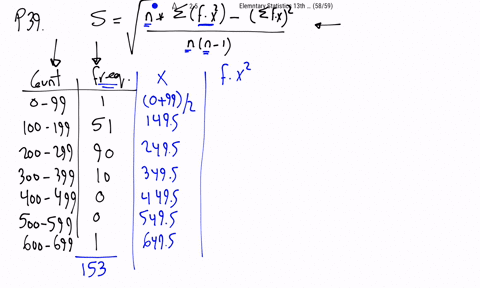 Elemntary Statistics 13th ... (58/59)
P39. S = √ n * Σ(f.x²) − (Σf.x)² / n(n-1) ←
Count freq. X f.x²
0-99 1 (0+99)/2
100-199 51 149.5
200-299 90 249.5
300-399 10 349.5
400-499 0 449.5
500-599 0 549.5
600-699 1 649.5
153